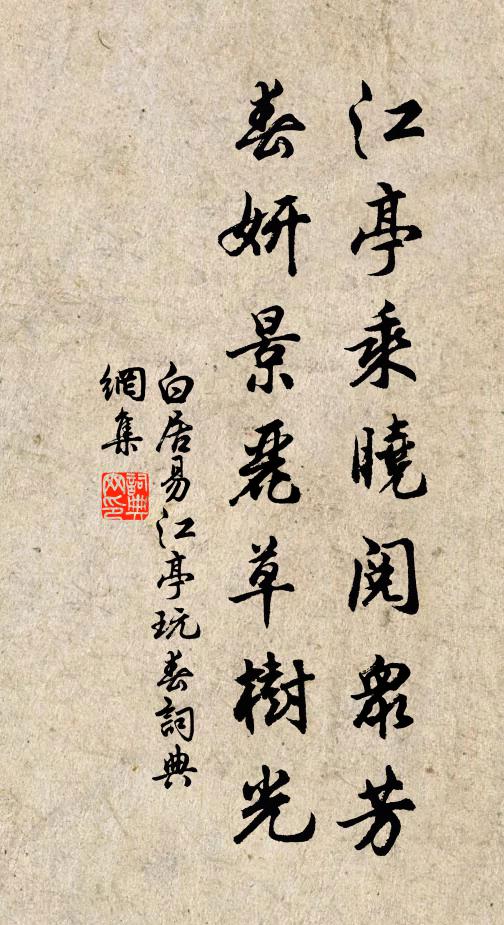 江亭乘曉閱眾芳
春妍景麗草樹光
白居易江亭玩春詞典
網集
詞典網印